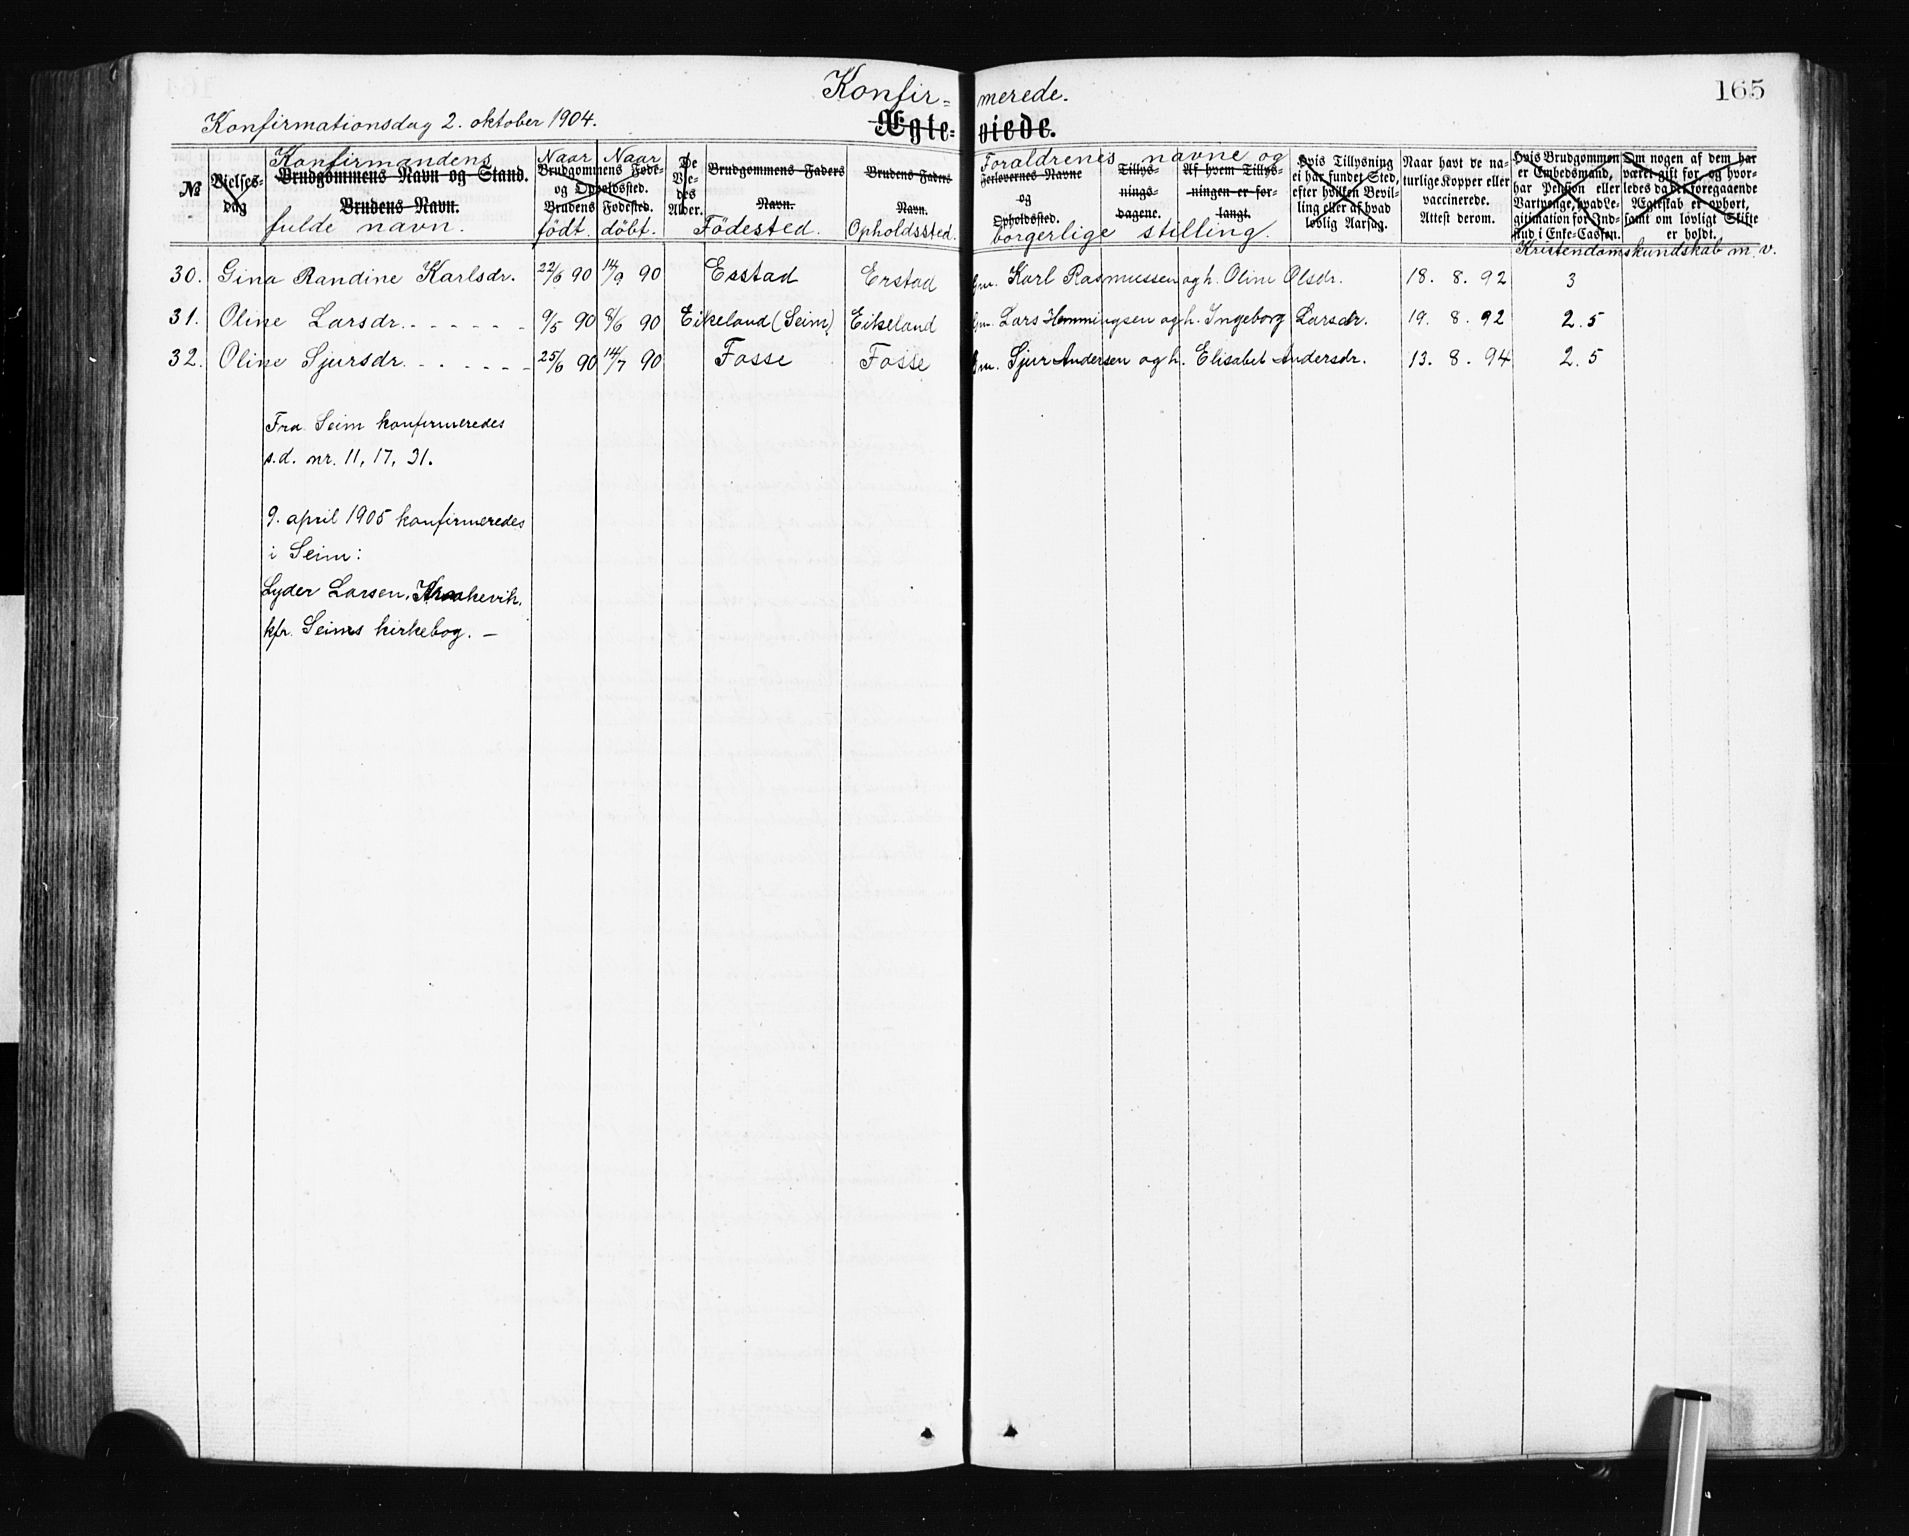 Konfir- merede.
165
Konfirmationsdag 2. oktober 1904.
Ægte- viede.
№
Vielses-
dag
Konfirmandens
Brudgommens Navn og Stand.
Brudens Navn.
fulde navn.
Naar Naar
Brudgommens Føde-
og Opholdssted.
Brudens Fødested.
født. døbt.
De
Vi-
des
Alder.
Brudgommens Faders
Navn.
Födested.
Brudens Faders
Navn.
Opholdssted.
Forældrenes navne og
Forlovernes Navne
og
Opholdssted.
borgerlige stilling.
Tillys-
nings-
dagene.
Af hvem Tillys-
ningen er for-
langt.
Hvis Tillysning
ei har fundet Sted,
efter hvilken Bevil-
ling eller af hvad
lovlig Aarsag.
Naar havt de na-
turlige Kopper eller
vaccinerede.
Attest derom.
Hvis Brudgommen
er Embedsmand,
har Pension eller
Vartpenge, hvad Le-
gitimation for Ind-
skud i Enke-Cassen.
Om nogen af dem har
været gift før, og hvor-
ledes da det foregaaende
Ægteskab er ophørt,
samt om lovligt Skifte
er holdt.
Kristendomskundskab m. v.
30. Gina Randine Karlsdr. 22/8 90 14/9 90 Esstad Erstad Gm. Karl Rasmussen og h. Oline Olsdr. 18. 8. 92 3
31. Oline Larsdr. - - - - - - 9/5 90 8/6 90 Eikeland (Seim) Eikeland Gm. Lars Hemmingsen og h. Ingeborg Larsdr. 19. 8. 92 2.5
32. Oline Sjursdr. - - - - - - 25/6 90 14/7 90 Fosse Fosse Gm. Sjur Andersen og h. Elisabet Andersdr. 13. 8. 94 2.5
Fra Seim konfirmeredes
s.d. nr. 11, 17, 31.
9. april 1905 konfirmeredes
i Seim:
Lyder Larsen, Kraakevik,
kfr. Seims kirkebog. —